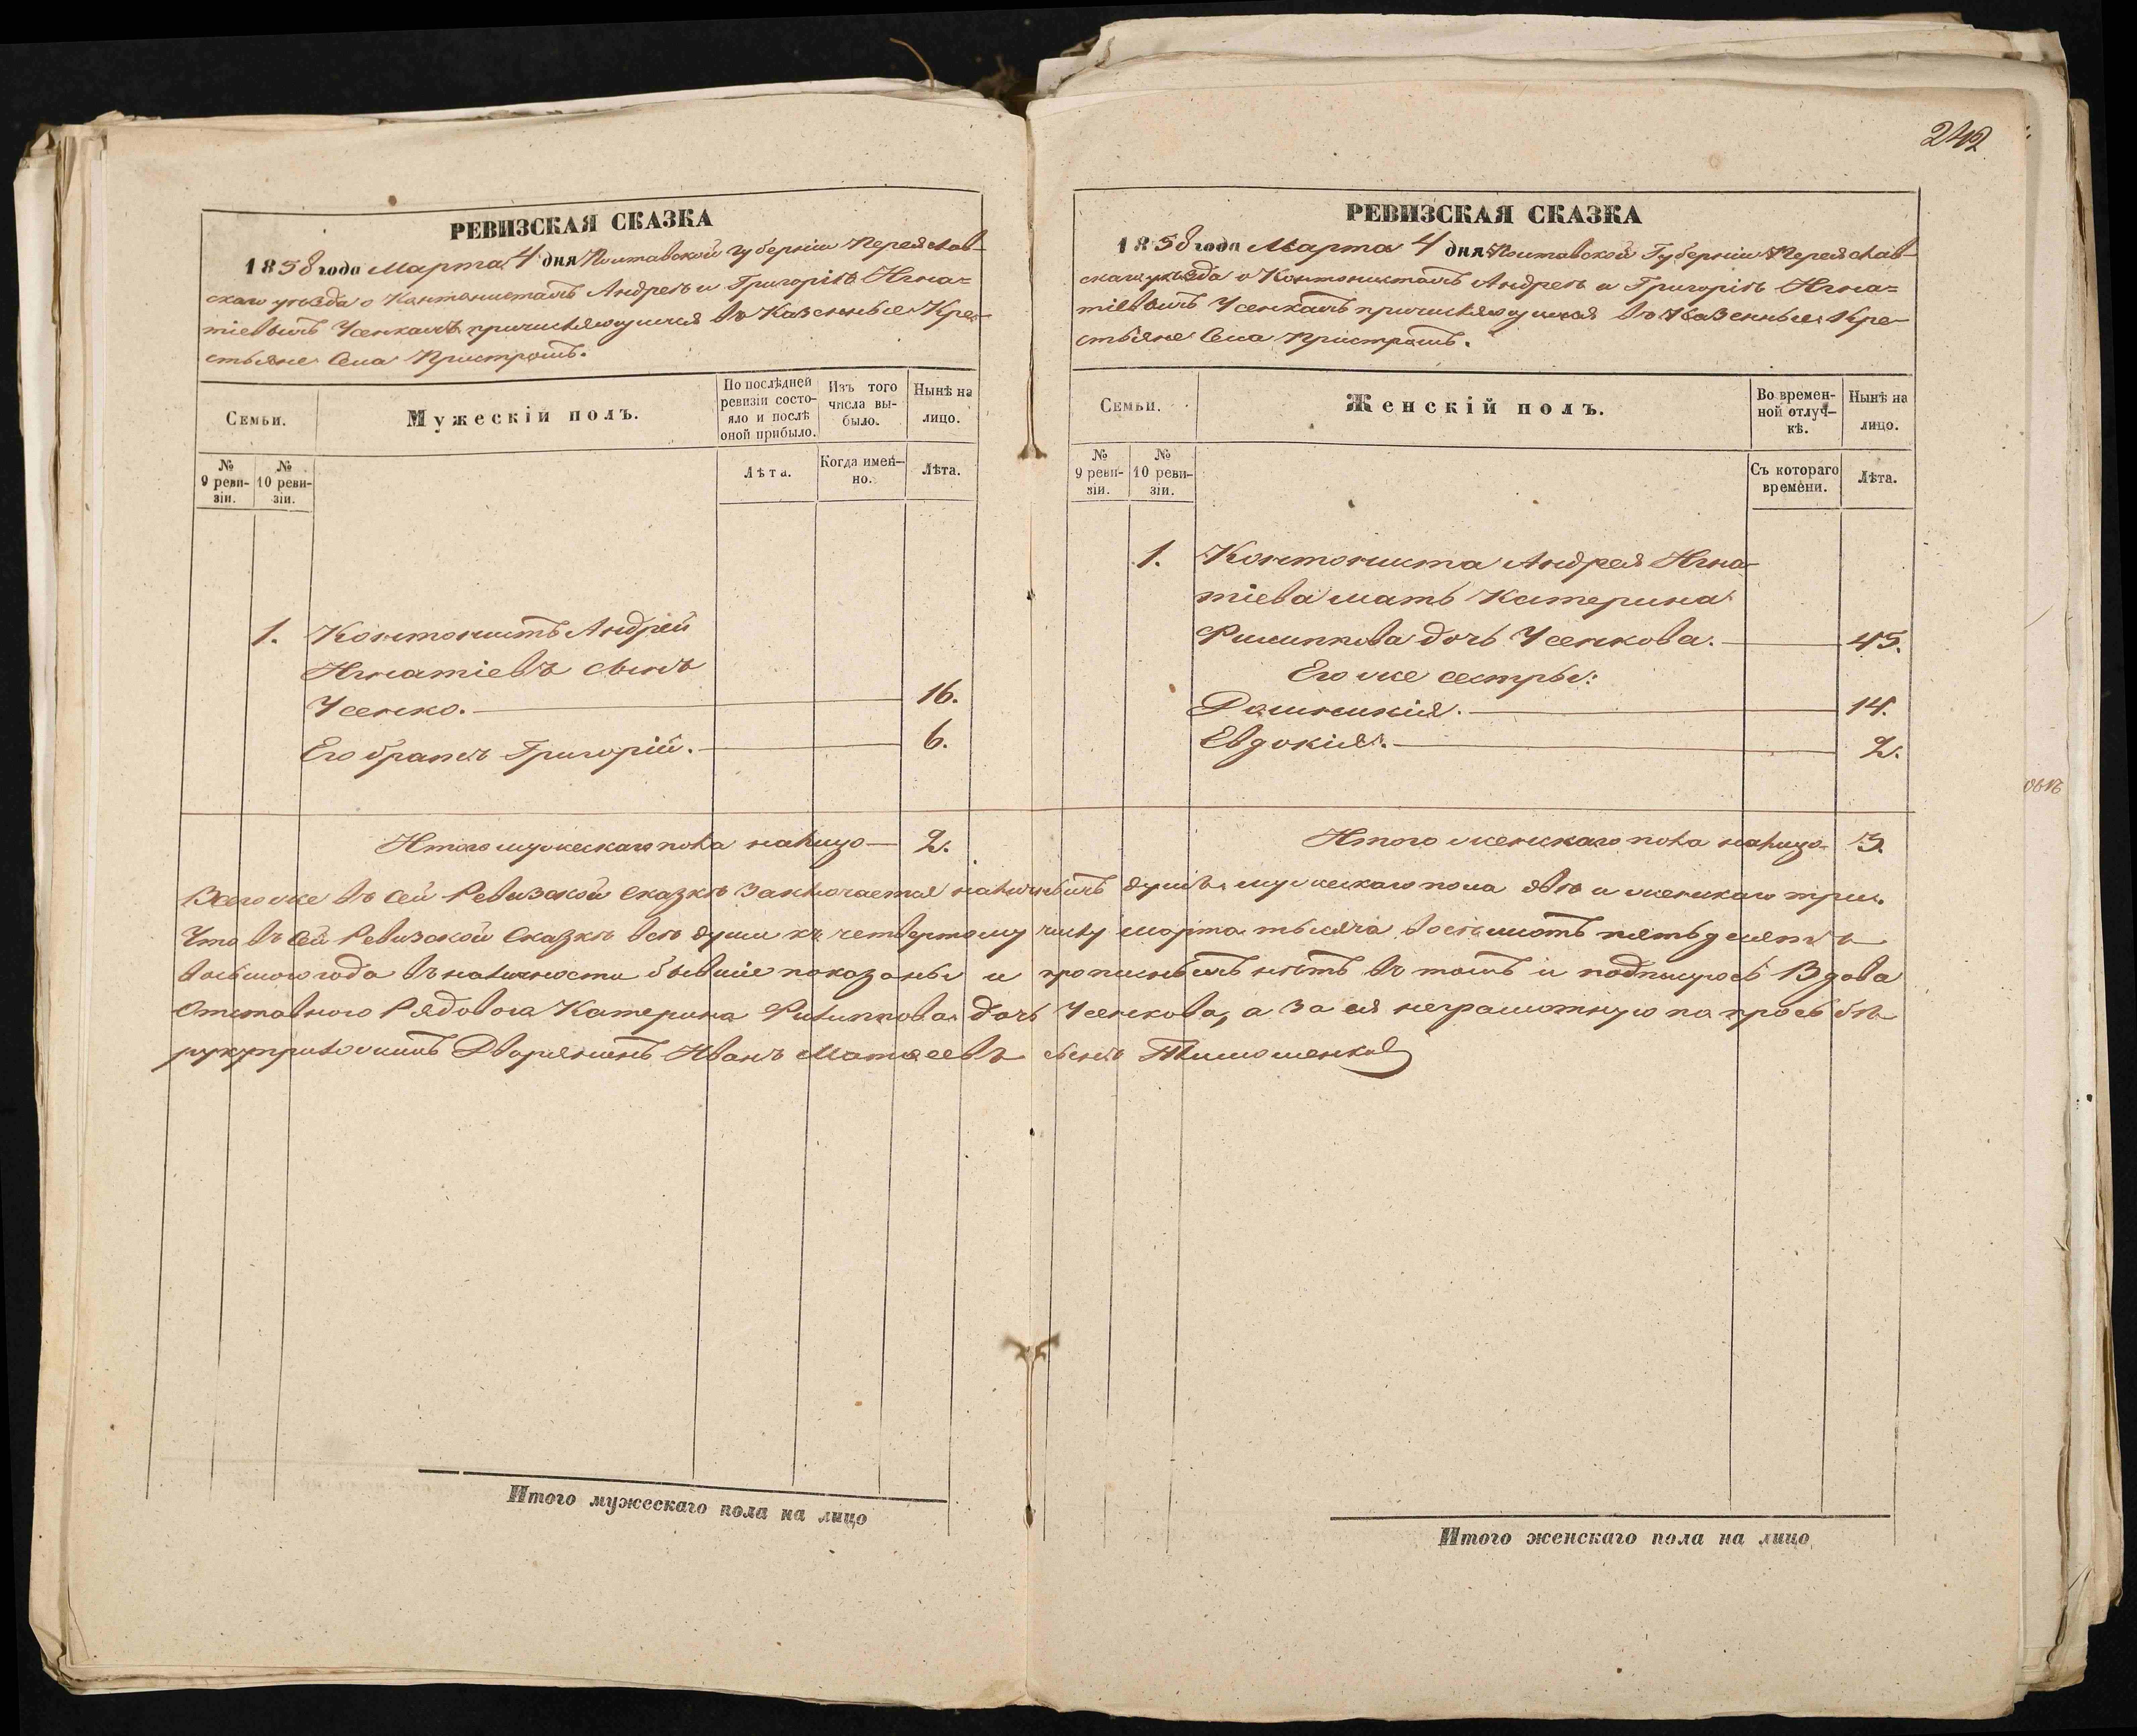 242
РЕВИЗСКАЯ СКАЗКА
1858 года Марта 4 дня Полтавской Губерніи Переяслав-
скаго уѣзда о Кантонистахъ Андреѣ и Григоріѣ Игна=
тіевыхъ Усенкахъ причисляющихся въ Казенные Кре-
стьяне Села Пристромъ.
Семьи.
Мужескій полъ.
По послѣдней ревизіи состо-яло и послѣ оной прибыло.
Изъ того числа вы-было.
Нынѣ на лицо.
№ 9 реви-зіи.
№ 10 реви-зіи.
Лѣта.
Когда имен-но.
Лѣта.
1. Контонистъ Андрей
Игнатіевъ сынъ
Усенко. 16.
Его братъ Григорій. 6.
Итого мужескаго пола налицо 2.
РЕВИЗСКАЯ СКАЗКА
1858 года Марта 4 дня Полтавской Губерніи Переяслав-
скаго уѣзда о Контонистахъ Андреѣ и Григоріѣ Игна=
тіевыхъ Усенкахъ причисляющихся въ Казенные Кре-
стьяне Села Пристромъ.
Семьи.
Женскій полъ.
Во времен-ной отлуч-кѣ.
Нынѣ на лицо.
№ 9 реви-зіи.
№ 10 реви-зіи.
Съ котораго времени.
Лѣта.
1. Контониста Андрея Игна-
тіева мать Катерина
Филиппова дочь Усенкова. 45.
Его же сестры:
Домникія. 14.
Евдокія. 2.
Итого женскаго пола налицо 3.
Всего же въ сей Ревизской Сказкѣ заключается наличныхъ душъ мужескаго пола двѣ и женскаго три.
Что въ сей Ревизской Сказкѣ всѣ души къ четвертому числу марта тысяча восемьсотъ пятьдесятъ
восьмого года въ наличности бывшіе показаны и прописныхъ нѣтъ въ томъ и подписуюсь Вдова
Отставного Рядового Катерина Филиппова дочь Усенкова, а за ея неграмотную по просьбѣ
руку приложилъ Дворянинъ Иванъ Матвеевъ сынъ Тимошенко
Итого мужескаго пола на лицо
Итого женскаго пола на лицо